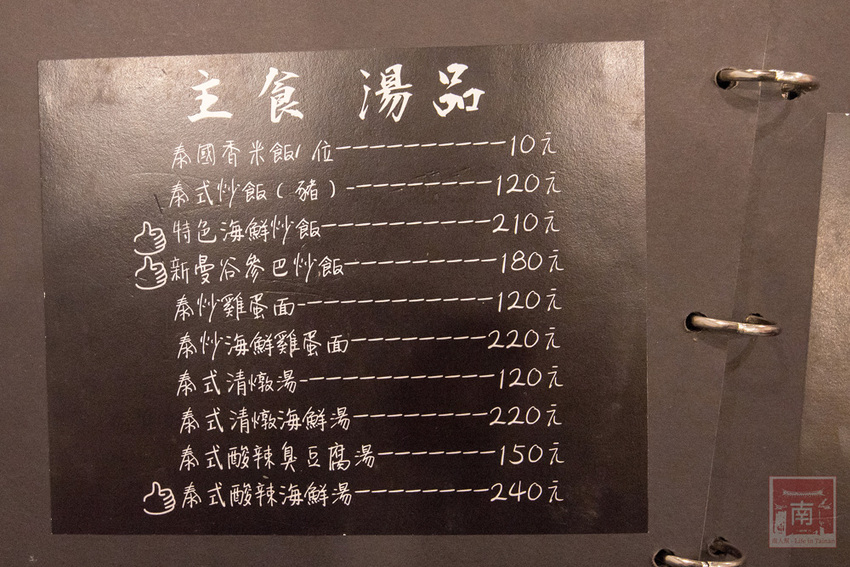 主食 湯品
泰國香米飯/位----------10元
泰式炒飯(豬)---------120元
特色海鮮炒飯----------210元
新曼谷參巴炒飯---------180元
泰炒雞蛋面------------120元
泰炒海鮮雞蛋面--------220元
泰式清燉湯------------120元
泰式清燉海鮮湯--------220元
泰式酸辣臭豆腐湯-------150元
泰式酸辣海鮮湯--------240元
南
Life in Tainan